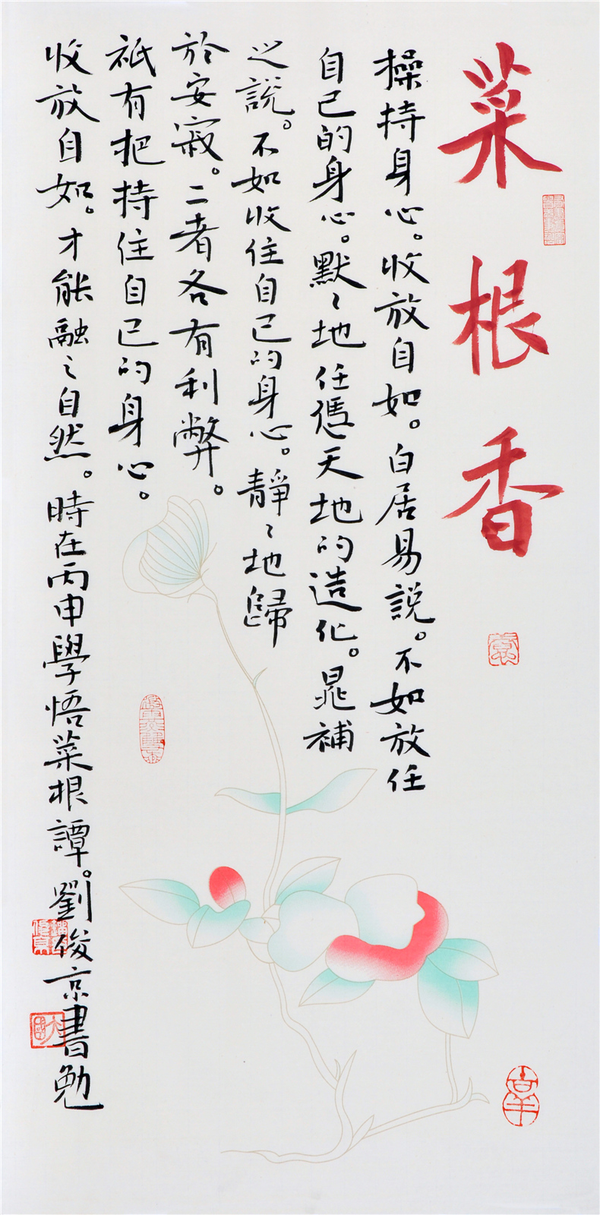 菜根香
操持身心。收放自如。白居易説。不如放任
自己的身心。默〻地任憑天地的造化。晁補
之説。不如收住自己的身心。靜〻地歸
於安寂。二者各有利弊。
祇有把持住自己的身心。
收放自如。才能融之自然。時在丙申學悟菜根譚。劉俊京書勉